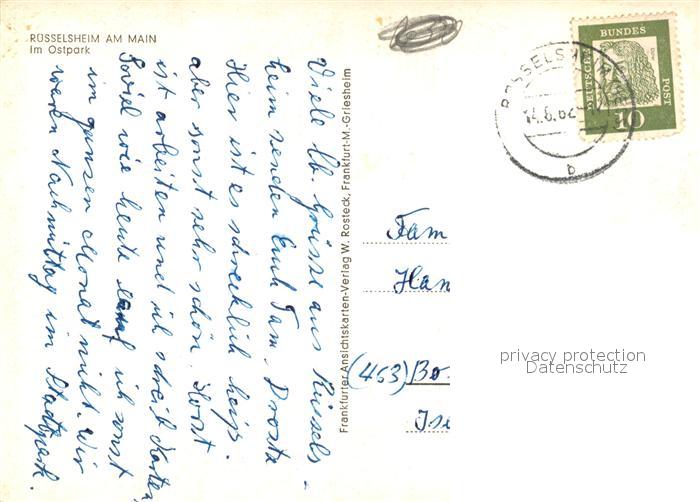 RÜSSELSHEIM AM MAIN
Im Ostpark
Viele lb Grüsse aus Rüssels-
heim senden Euch Fam. Droste
Hier ist es schrecklich heiß.
aber sonst sehr schön. Horst
ist arbeiten und ich schreib Karten,
Soviel wie heute lauf ich sonst
im ganzen Monat nicht. Wir
waren Nachmittag im Stadtpark.
Frankfurter Ansichtskarten-Verlag W. Rosteck, Frankfurt-M.-Griesheim
DEUTSCHE
BUNDES
POST
10
14.8.62
b
Fam
Han
(453) Bo
Ise
privacy protection
Datenschutz